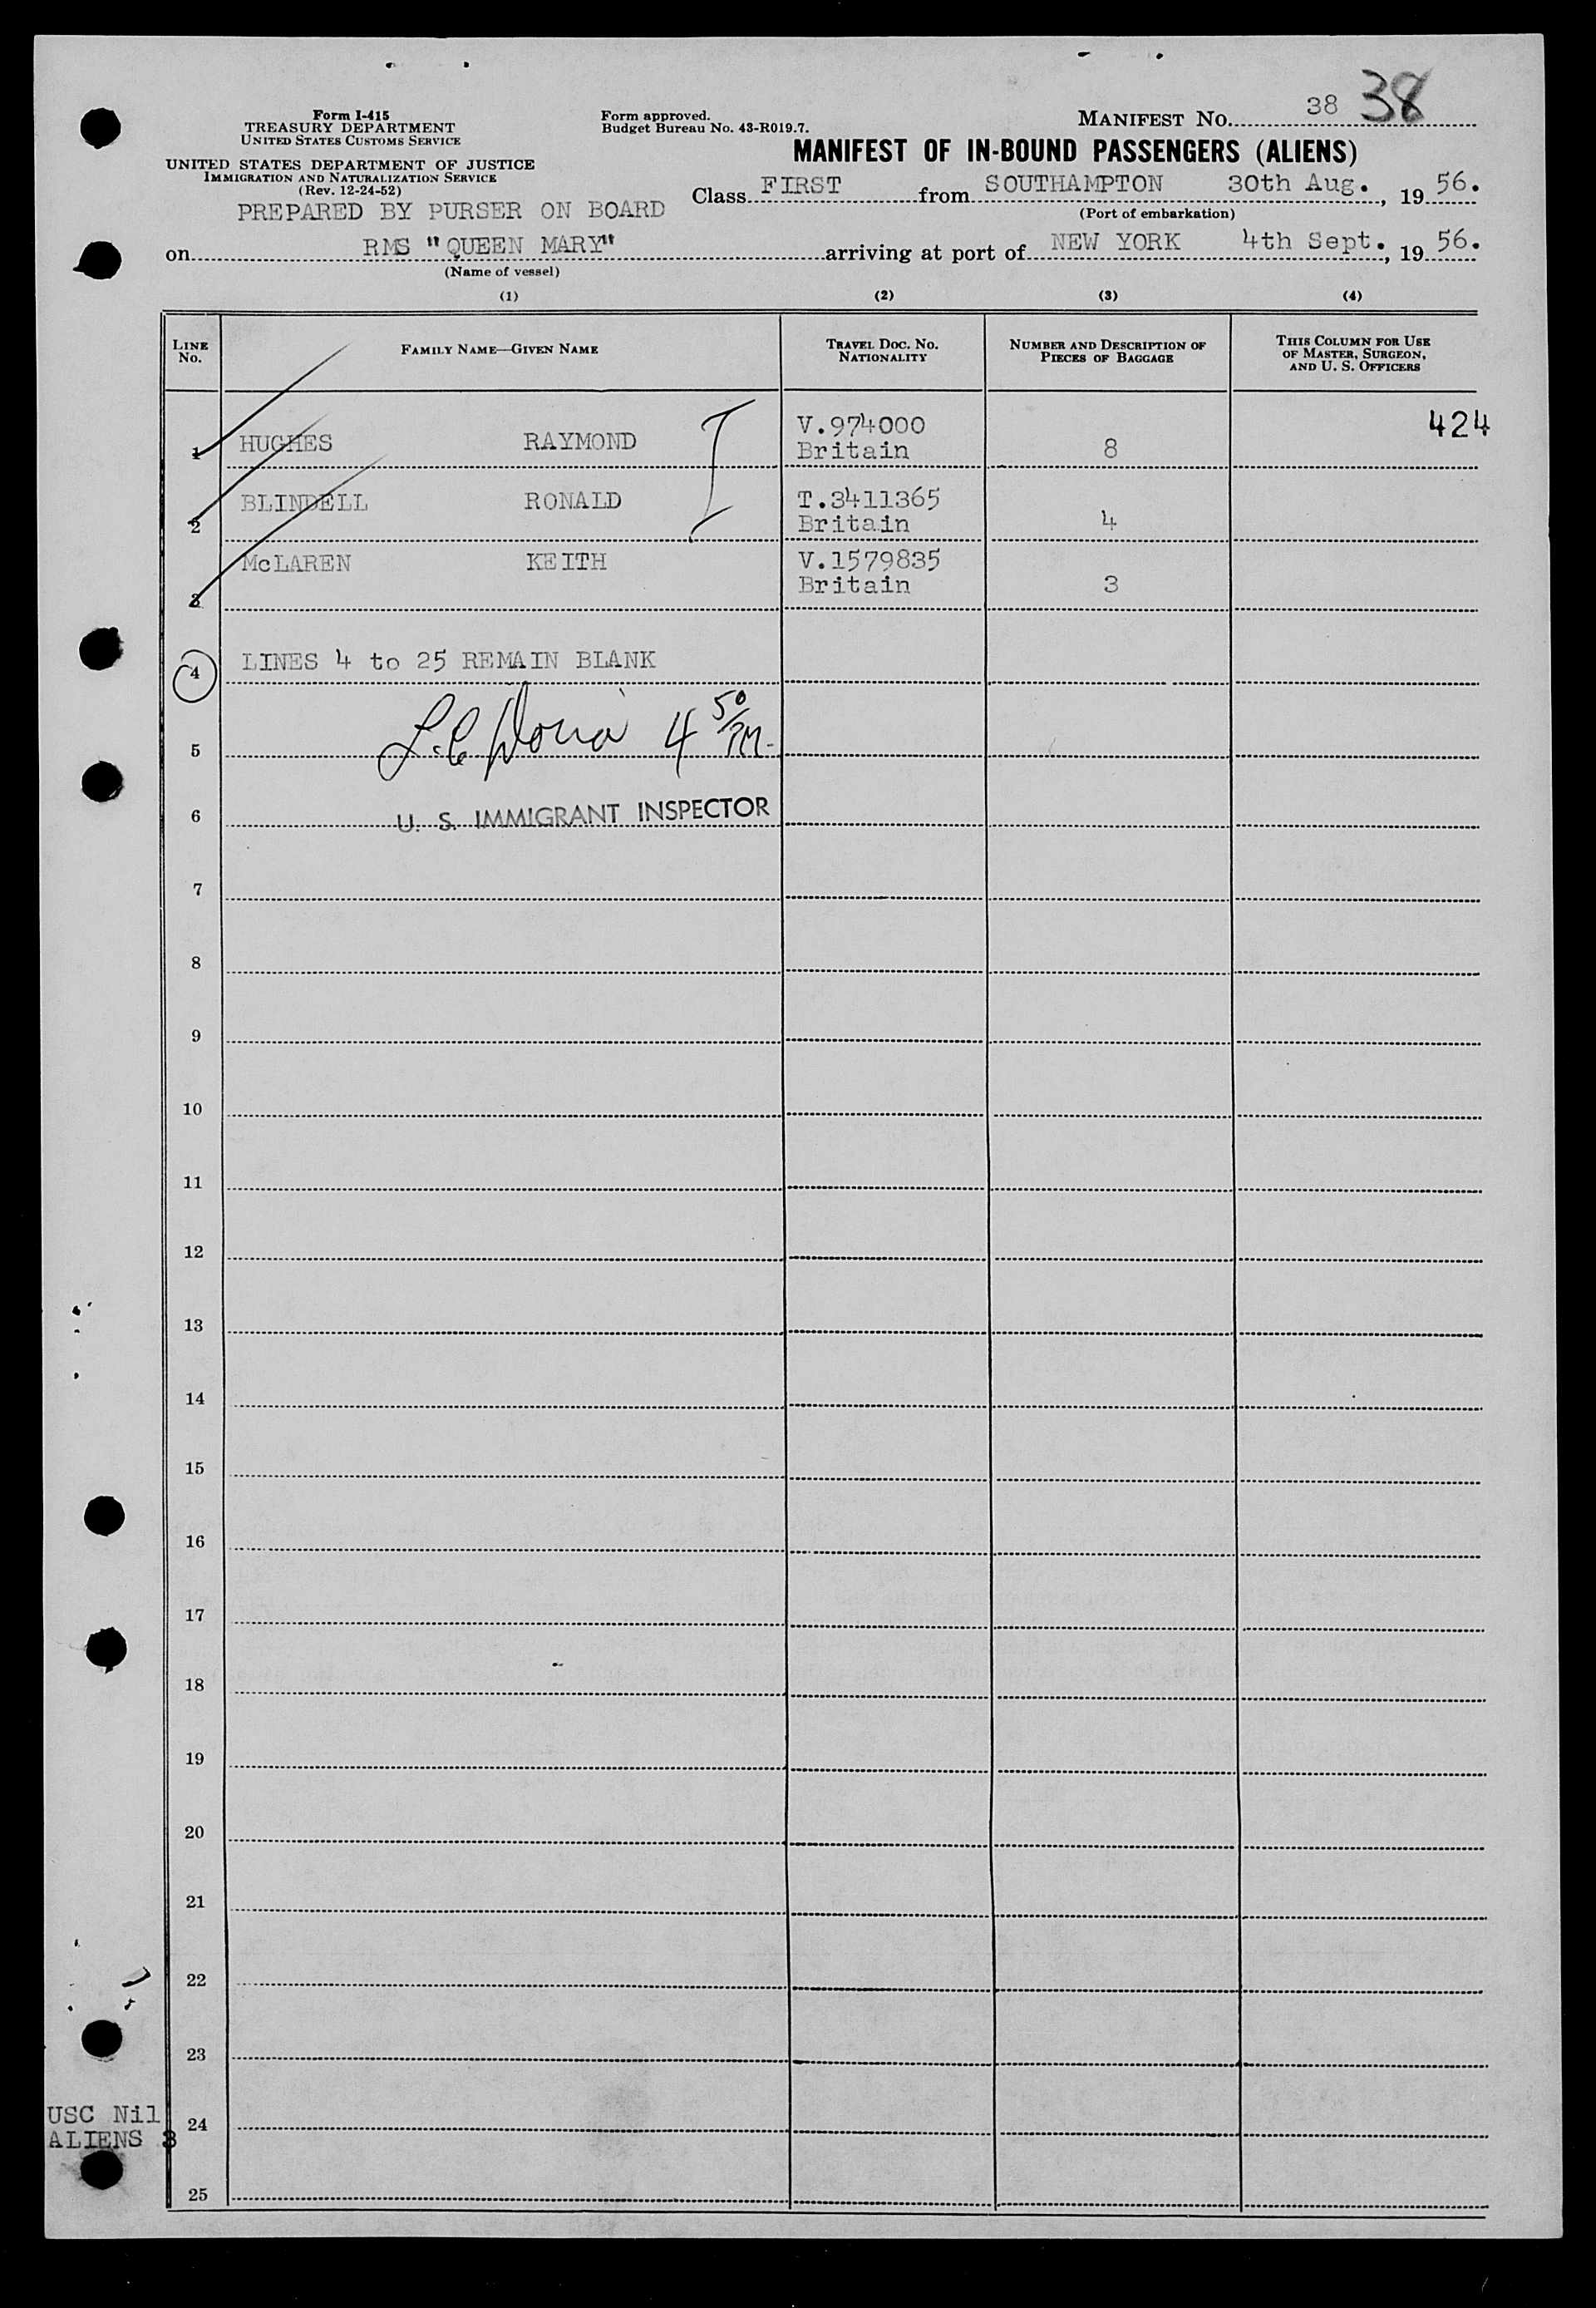 Form I-415
TREASURY DEPARTMENT
UNITED STATES CUSTOMS SERVICE
UNITED STATES DEPARTMENT OF JUSTICE
IMMIGRATION AND NATURALIZATION SERVICE
(Rev. 12-24-52)
PREPARED BY PURSER ON BOARD
Form approved.
Budget Bureau No. 43-R019.7.
MANIFEST No. 38 38
MANIFEST OF IN-BOUND PASSENGERS (ALIENS)
Class FIRST from SOUTHAMPTON 30th Aug., 19 56.
(Port of embarkation)
on RMS "QUEEN MARY" arriving at port of NEW YORK 4th Sept., 19 56.
(Name of vessel)
(1) (2) (3) (4)
LINE No. FAMILY NAME—GIVEN NAME TRAVEL DOC. No. NATIONALITY NUMBER AND DESCRIPTION OF PIECES OF BAGGAGE THIS COLUMN FOR USE OF MASTER, SURGEON, AND U. S. OFFICERS
424
1 HUGHES RAYMOND V.974000 Britain 8
2 BLINDELL RONALD T.3411365 Britain 4
3 McLAREN KEITH V.1579835 Britain 3
4 LINES 4 to 25 REMAIN BLANK
5 4 50/PM
6 U. S. IMMIGRANT INSPECTOR
7
8
9
10
11
12
13
14
15
16
17
18
19
20
21
22
23
USC Nil
24
ALIENS 3
25